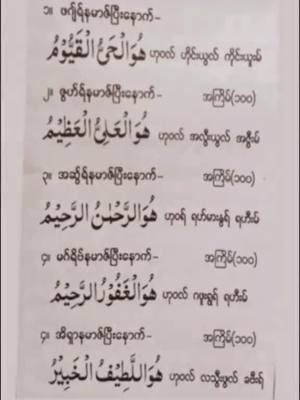 ၁။ ဖဂျ်ရ်နမာဇ်ပြီးနောက်-
هُوَالْحَىُّ الْقَيُّوْمُ ဟုဝလ် ဟိုင်းယွလ် ကိုင်ယူးမ်
၂။ ဇွဟ်ရ်နမာဇ်ပြီးနောက်- အကြိမ်(၁၀၀)
هُوَالْعَلِىُّ الْعَظِيْمُ ဟုဝလ် အလွီးယွလ် အဇွီးမ်
၃။ အဆွ်ရ်နမာဇ်ပြီးနောက်- အကြိမ်(၁၀၀)
هُوَالرَّحْمٰنُ الرَّحِيْمُ ဟုဝရ် ရဟ်မားနွရ် ရဟီးမ်
၄။ မဂ်ရိဗ်နမာဇ်ပြီးနောက်- အကြိမ်(၁၀၀)
هُوَالْغَفُوْرُ الرَّحِيْمُ ဟုဝလ် ဂဖူးရွရ် ရဟီးမ်
၄။ အိရှာနမာဇ်ပြီးနောက်- အကြိမ်(၁၀၀)
هُوَاللَّطِيْفُ الْخَبِيْرُ ဟုဝလ် လသွီးဖွလ် ခဗီးရ်